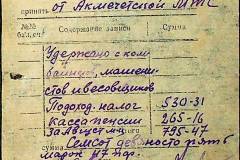 принять от Акмечетской МТС
№№ бал. сч. Содержание записи Сумма
Удержано с ком
байнер, машени
стов и весовщиков
Подоход. налог 530-31
касса пенсии 265-16
за Август м-ц 795-47
сумма Семсот девяносто пять
марок 47 пф.